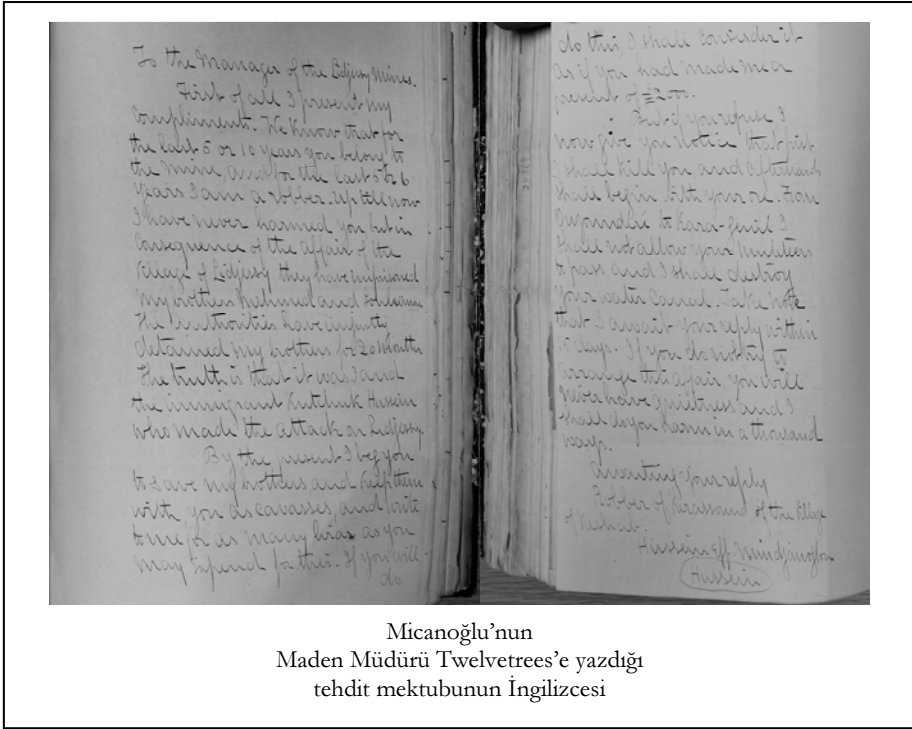 To the Manager of the Lidjessy Mines.
First of all I present my
compliments. We know that for
the last 5 or 10 years you belong to
the mine, and for the last 5 or 6
years I am a robber. Up till now
I have never harmed you but in
consequence of the affair of the
village of Lidjessy they have imprisoned
my brothers Mehmed and
The authorities have unjustly
detained my brothers for 20 months
The truth is that it was I and
the immigrant Kutchuk Hussein
who made the attack on Lidjessy.
By the present I beg you
to save my brothers and keep them
with you as cavasses and write
to me for as many liras as you
may expend for this. If you will
do
do this, I shall consider it
as if you had made me a
present of £2000.
But if you refuse I
now give you notice that first
I shall kill you and afterwards
shall begin with your ore. From
to Kara-
shall not allow your muleteers
to pass and I shall destroy
your water canal. Take note
that I await your reply within
5 days. If you do not try to
arrange this affair, you will
never have quietness and I
shall do you harm in a thousand
ways.
Awaiting your reply
Robber of Kerassound of the village
of Keshab.
Hussein Eff. Mindjanoglou
Hussein
Micanoğlu’nun
Maden Müdürü Twelvetrees’e yazdığı
tehdit mektubunun İngilizcesi